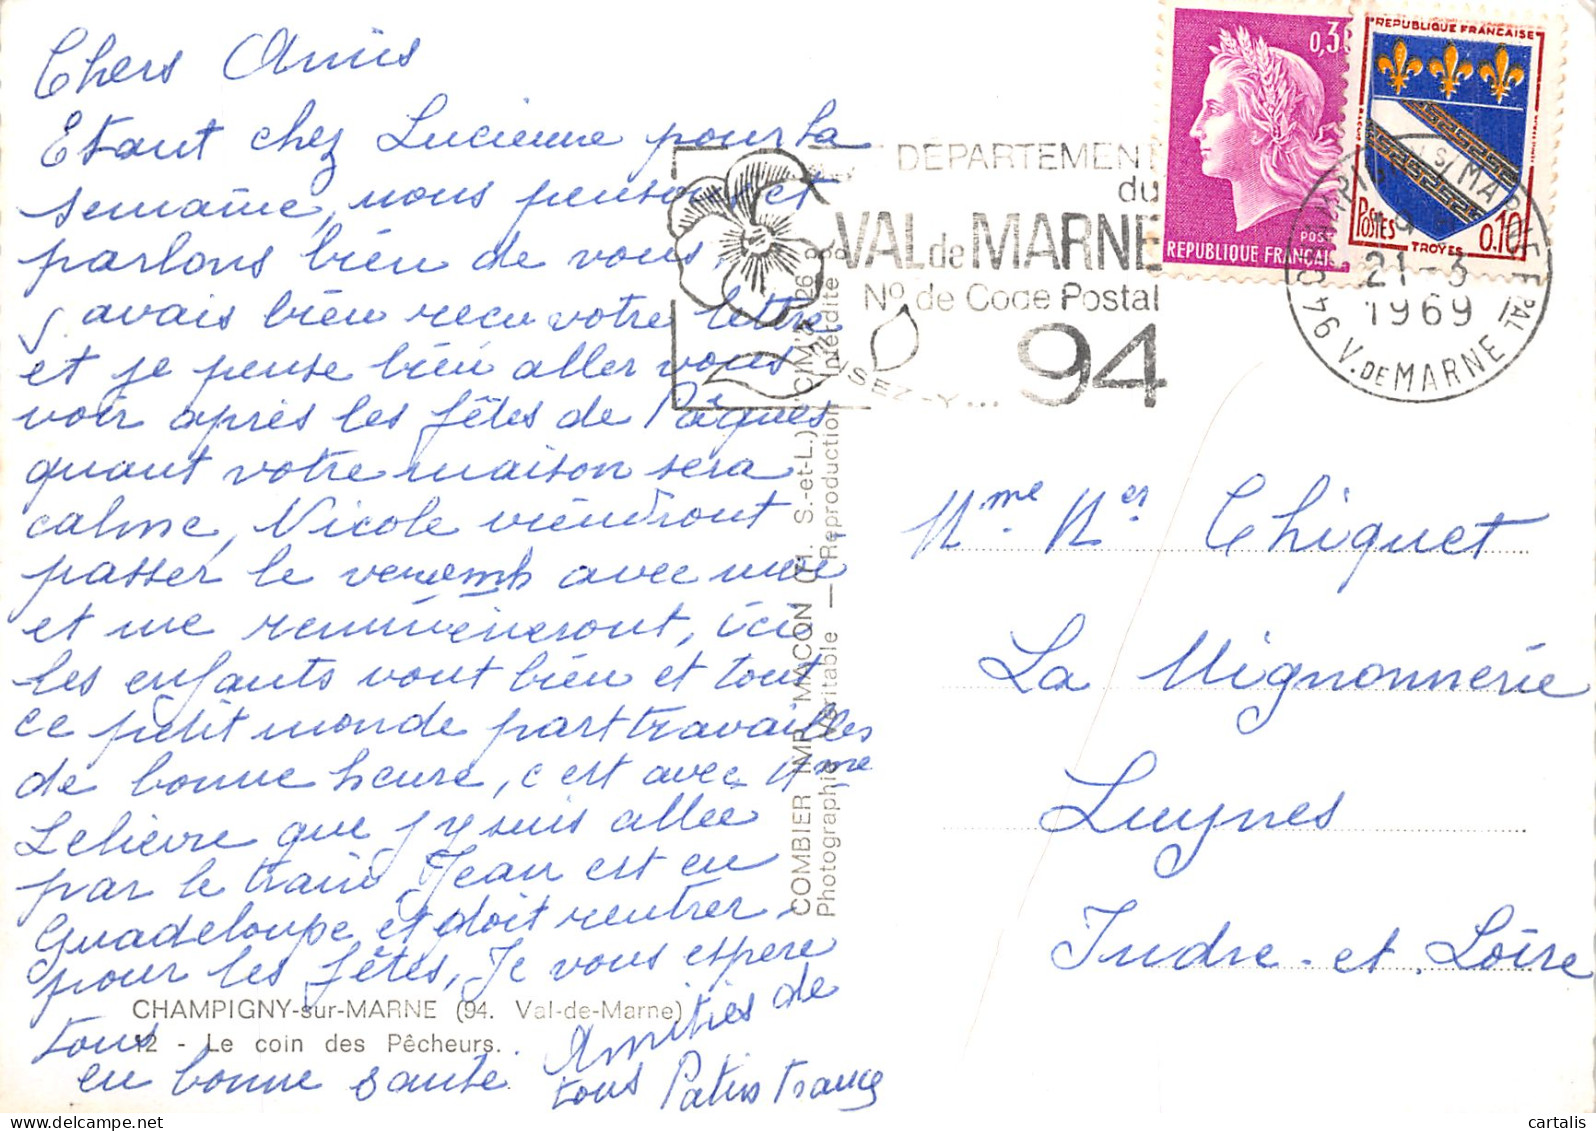 Chers Amis
Etant chez Lucienne pour la
semaine, nous pensons et
parlons bien de vous,
j avais bien reçu votre lettre
et je pense bien aller vous
voir après les fêtes de Pâques
quant votre maison sera
calme, Nicole viendront
passer le avec moi
et me remmèneront, ici
les enfants vont bien et tout
ce petit monde part travailles
de bonne heure, c est avec Mme
Lelièvre que j y suis allee
par le train Jean est en
Guadeloupe et doit rentrer
pour les fêtes, Je vous espere
tous
en bonne santé
Amitiés de
tous
CHAMPIGNY-sur-MARNE (94. Val-de-Marne)
12 - Le coin des Pêcheurs.
COMBIER IMP. MACON (71. S.-et-L.) "CIM"
Photographie Véritable — Reproduction interdite
DÉPARTEMENT
du
VAL de MARNE
No de Code Postal
94
PENSEZ-Y...
0,3
REPUBLIQUE FRANÇAISE
POSTES
REPUBLIQUE FRANÇAISE
POSTES
0.10
TROYES
21-3
1969
94 V. DE MARNE
Mme Chiquet
La Mignonnerie
Luynes
Indre-et-Loire
cartalis